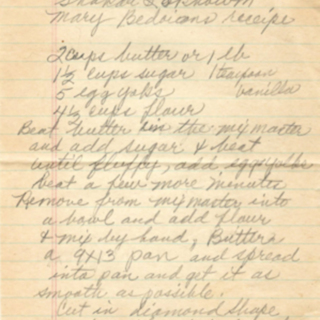 Mary Bedoians receipe
2 cups butter or 1 lb
1½ cups sugar 1 teaspoon
5 egg yolks vanilla
4½ cups flour
Beat butter in the mixmaster
and add sugar & beat
until fluffy, add egg yolks
beat a few more minutes
Remove from mixmaster into
a bowl and add flour
& mix by hand, Butter a
a 9X13 pan and spread
into pan and get it as
smooth as possible.
Cut in diamond shape,